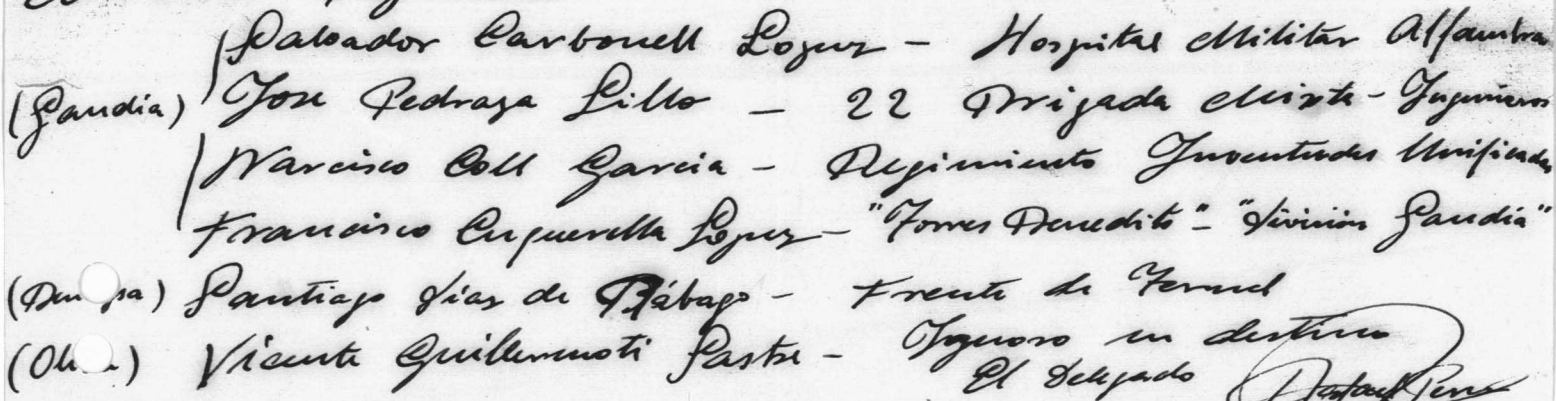 Salvador Carbonell Lopez - Hospital Militar Alfambra
(Gandia) Jose Pedraza Lillo - 22 Brigada Mixta - Ingenieros
Narciso Coll Garcia - Regimiento Juventudes Unificadas
Francisco Cuquerella Lopez - "Torres Benedito" - "División Gandia"
Santiago Dias de Rábago - Frente de Teruel
Vicente Guillermoti Sastre - Ignoro su destino
El Delegado